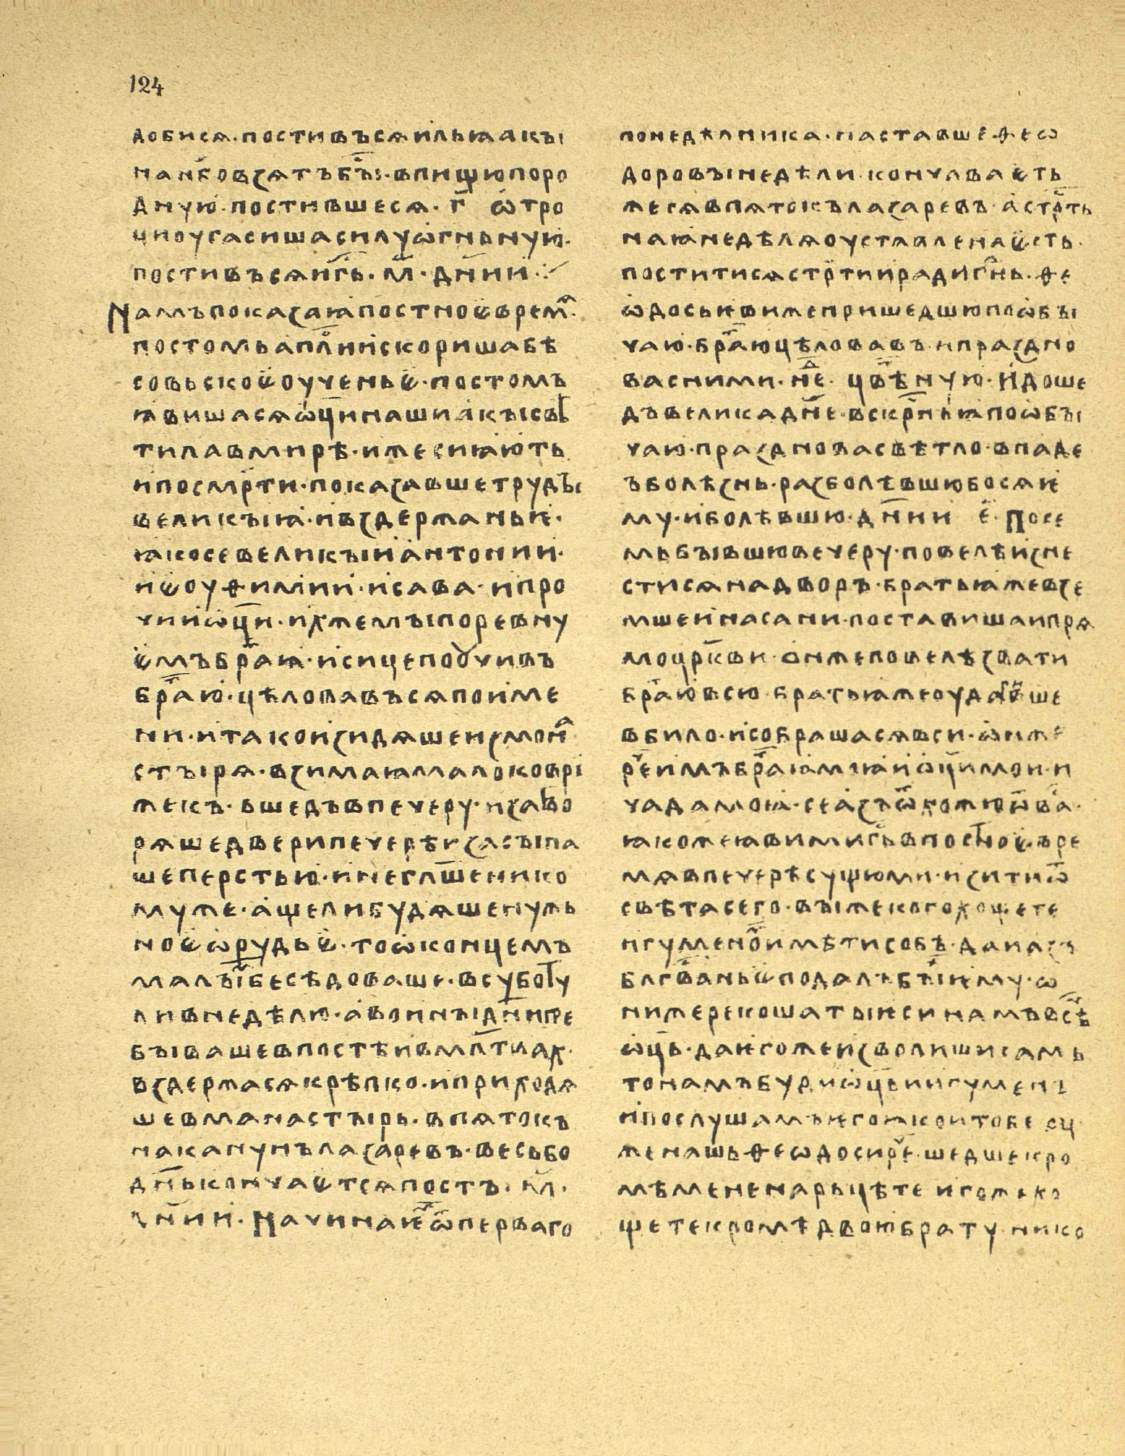 124
добисѧ·постивъсѧильꙗакы
нан҃бовзѧтъбы҇·впищюпоро
дную·постившесѧ·г҃ ѿтро
циоугасишасилуѡгньную·
постивъсѧиг҃ь·м҃·дн҃ии·
Намъпоказаꙗпостноѥврем҇ѧ·
постомьапл҃иискоришабѣ
совьскоѥоученьѥ·постомъ
ꙗвишасѧѡц҃инашиакысвѣ
тилавмирѣ·ижесиꙗють
ипосмр҃ти·показавшетруды
великыꙗ·ивздержаньꙗ·
ꙗкосевеликыиантонии·
иѥоуфимии·исава·ипро
чииѡц҃и·ихжемыпоревну
ѥмъбра҃ꙗ·исицепоꙋчивъ
бра҃ю·цѣловавъсѧпоиме
ни·итакоизидѧшеизмона҃
стырѧ·взимаꙗмалоковри
жекъ·вшедъвпечеру·изатво
рѧшедверипечерѣизасыпа
шеперстью·инегл҃шенико
муже·ащелибудѧшенужь
ноѥѡрудьѥ·тоѡконцемъ
малы҇бесѣдоваше·всуботу
ливнедѣлю·авоиныꙗдн҃ипре
бывашевпостѣивмл҃твах·
вздержасѧкрѣпко·иприходѧ
шевманастырь·впѧтокъ
наканунълазаревъ·весьбо
дн҃ьконьчаѥтсѧпостъ·м҃·
дн҃ии·Начинаꙗи҇ѿперваго
понедѣлника·наставшефеѡ
доровынедѣли·кончаваѥть
жесѧвпѧтокълазаревъ·астр҇ть
наꙗнедѣлѧоуставленаѥсть·
поститисѧстр҇тиирадиг҃нь·фе
ѡдосьѥвижепришедшюпоѡбы
чаю·бра҃юцѣловавъ·ипраздно
васними·не҇д·цвѣ҇ную·Идоше
дъвеликадн҃е·вскрн҇ьꙗпоѡбы
чаю·празднозасвѣтло·впаде
ъболѣзнь·разболѣвшюбосѧѥ
му·иболѣвшю·дн҃ии е҃·Посе
мьбывшювечеру·повелѣизне
стисѧнадворъ·братьꙗжевзе
мшеинасани·поставишаипрѧ
моцр҃кви·онжеповелѣзвати
бра҃юсвсю·братьꙗжеоудариш҇ше
вбило·исобрашасѧвси·ѡнже
ре҇имъбра҃ꙗмоꙗиѡц҃имои·и
чадамоꙗ·сеазъѿхожюѿва҇·
ꙗкожеꙗвимиг҃ьвпостноѥвре
мѧвпечерѣсущюми·изитиѿ
свѣтасего·выжекогохощете
игуменом҇имѣтисобѣ·даиазъ
блгв҃ньѥподалъбых҇ꙗму·ѡ
нижерекошатыꙗсинамъвсѣ҇
ѡц҃ь·даꙗгожеизволишисамъ
тонамъбудиѡц҃ьиигуменъ
ипослушамъꙗгоꙗкоитобе ѡц҃
женашьфеѡдосире҇·шедшекро
мѣмененарьцѣте ꙗгожехо
щетекромѣдвоюбрату·нико